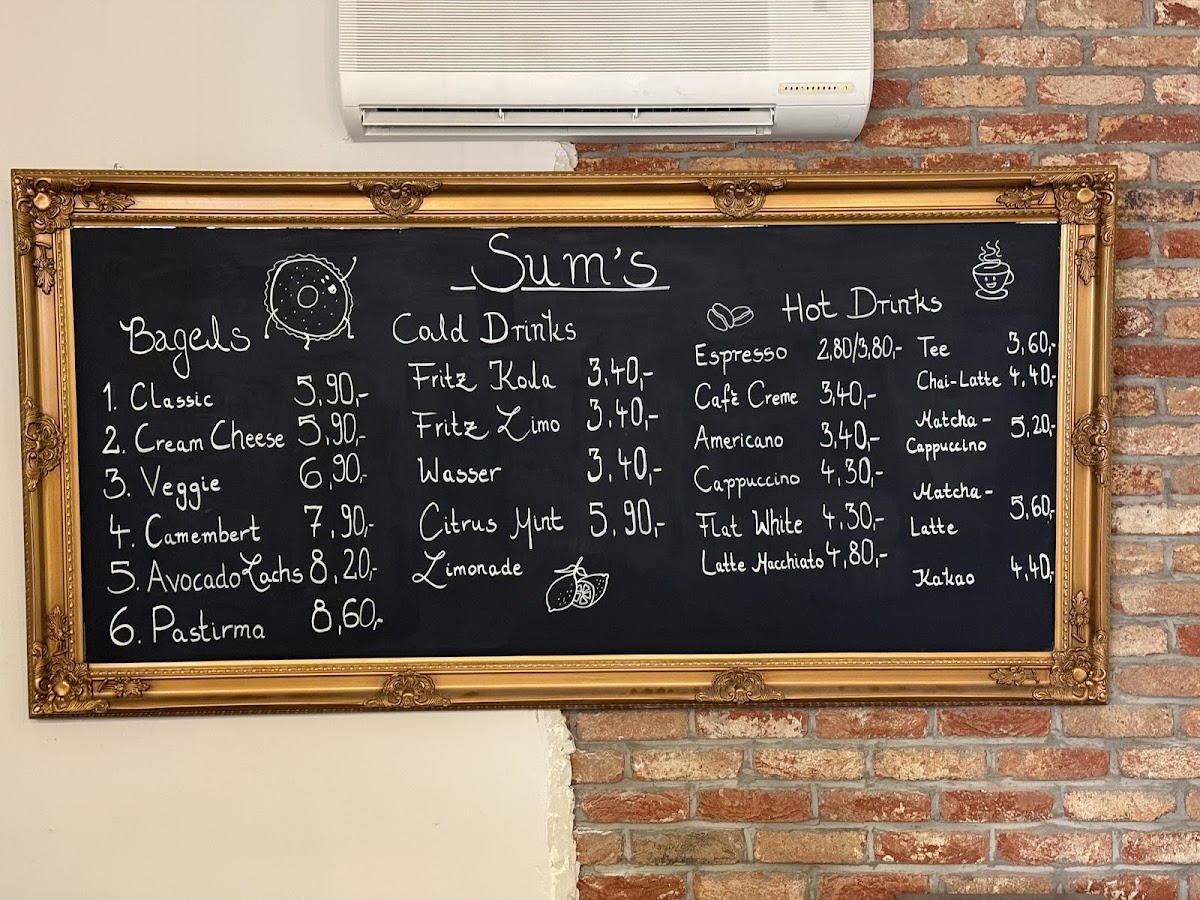 Sum's
Bagels
1. Classic 5,90,-
2. Cream Cheese 5,90,-
3. Veggie 6,90,-
4. Camembert 7,90,-
5. Avocado Lachs 8,20,-
6. Pastirma 8,60,-
Cold Drinks
Fritz Kola 3,40,-
Fritz Limo 3,40,-
Wasser 3,40,-
Citrus Mint 5,90,-
Limonade
Hot Drinks
Espresso 2,80/3,80,-
Cafè Creme 3,40,-
Americano 3,40,-
Cappuccino 4,30,-
Flat White 4,30,-
Latte Macchiato 4,80,-
Tee 3,60,-
Chai-Latte 4,40,-
Matcha-
Cappuccino 5,20,-
Matcha-
Latte 5,60,-
Kakao 4,40,-